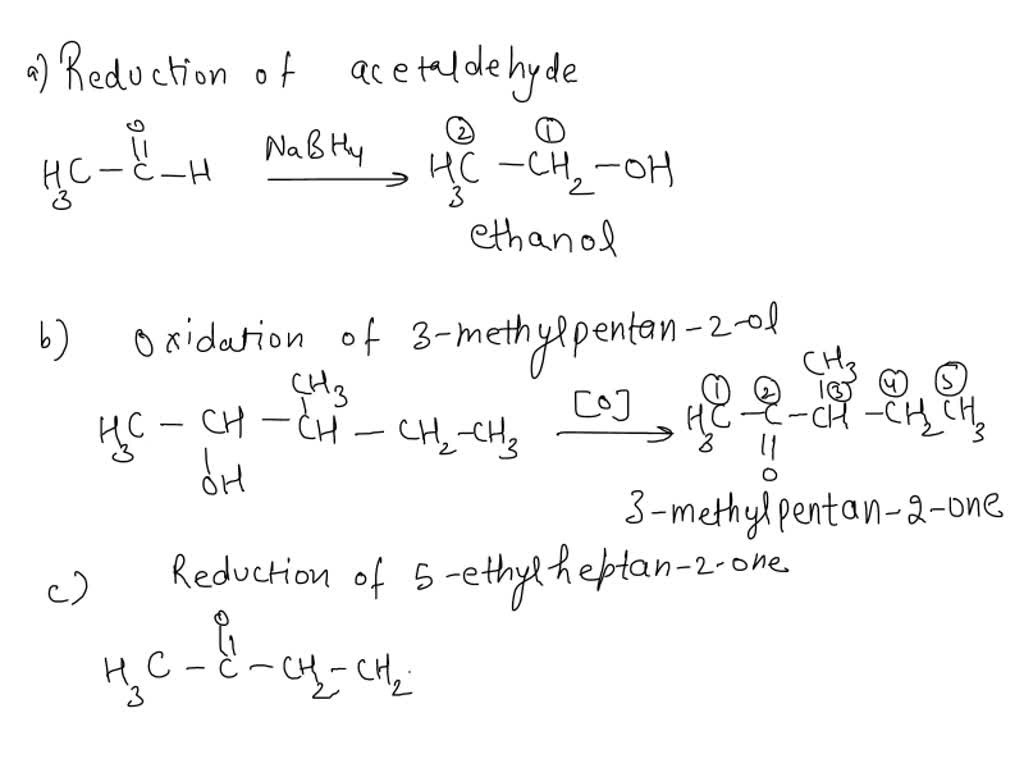 a) Reduction of acetaldehyde
O ② ①
H3C – C – H NaBH4 H3C – CH2 – OH
ethanol
b) Oxidation of 3-methylpentan-2-ol
CH3 CH3
① ② ③ ④ ⑤
H3C – CH – CH – CH2 – CH3 [O] H3C – C – CH – CH2 CH3
OH O
3-methylpentan-2-one
c) Reduction of 5-ethylheptan-2-one
O
H3C – C – CH2 – CH2